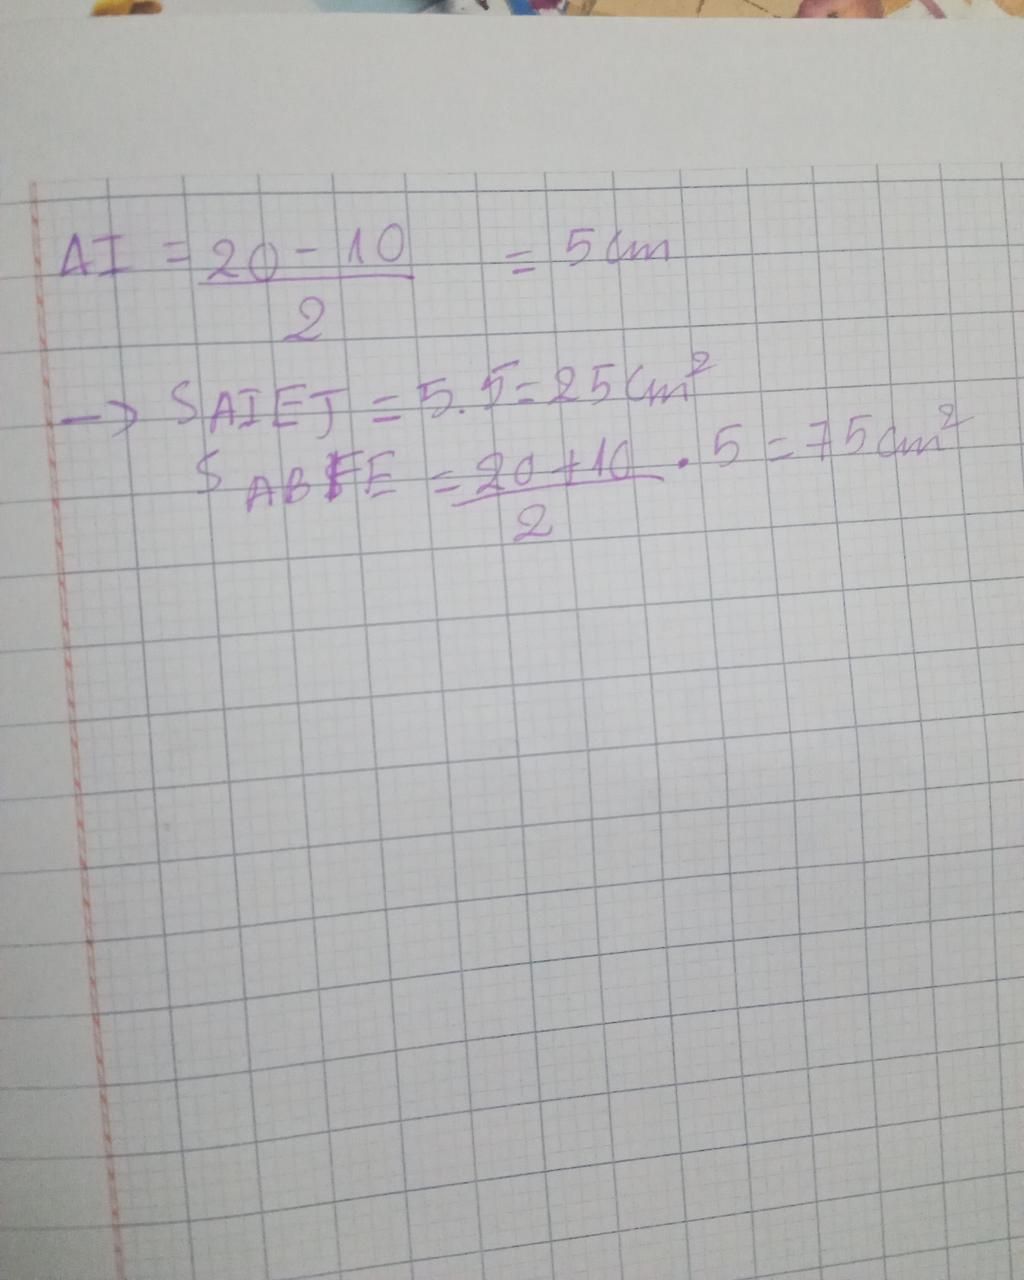 AI = 20 - 10 / 2 = 5 cm
→ S AIEJ = 5.5 = 25 cm²
S ABFE = 20 + 10 / 2 . 5 = 75 cm²